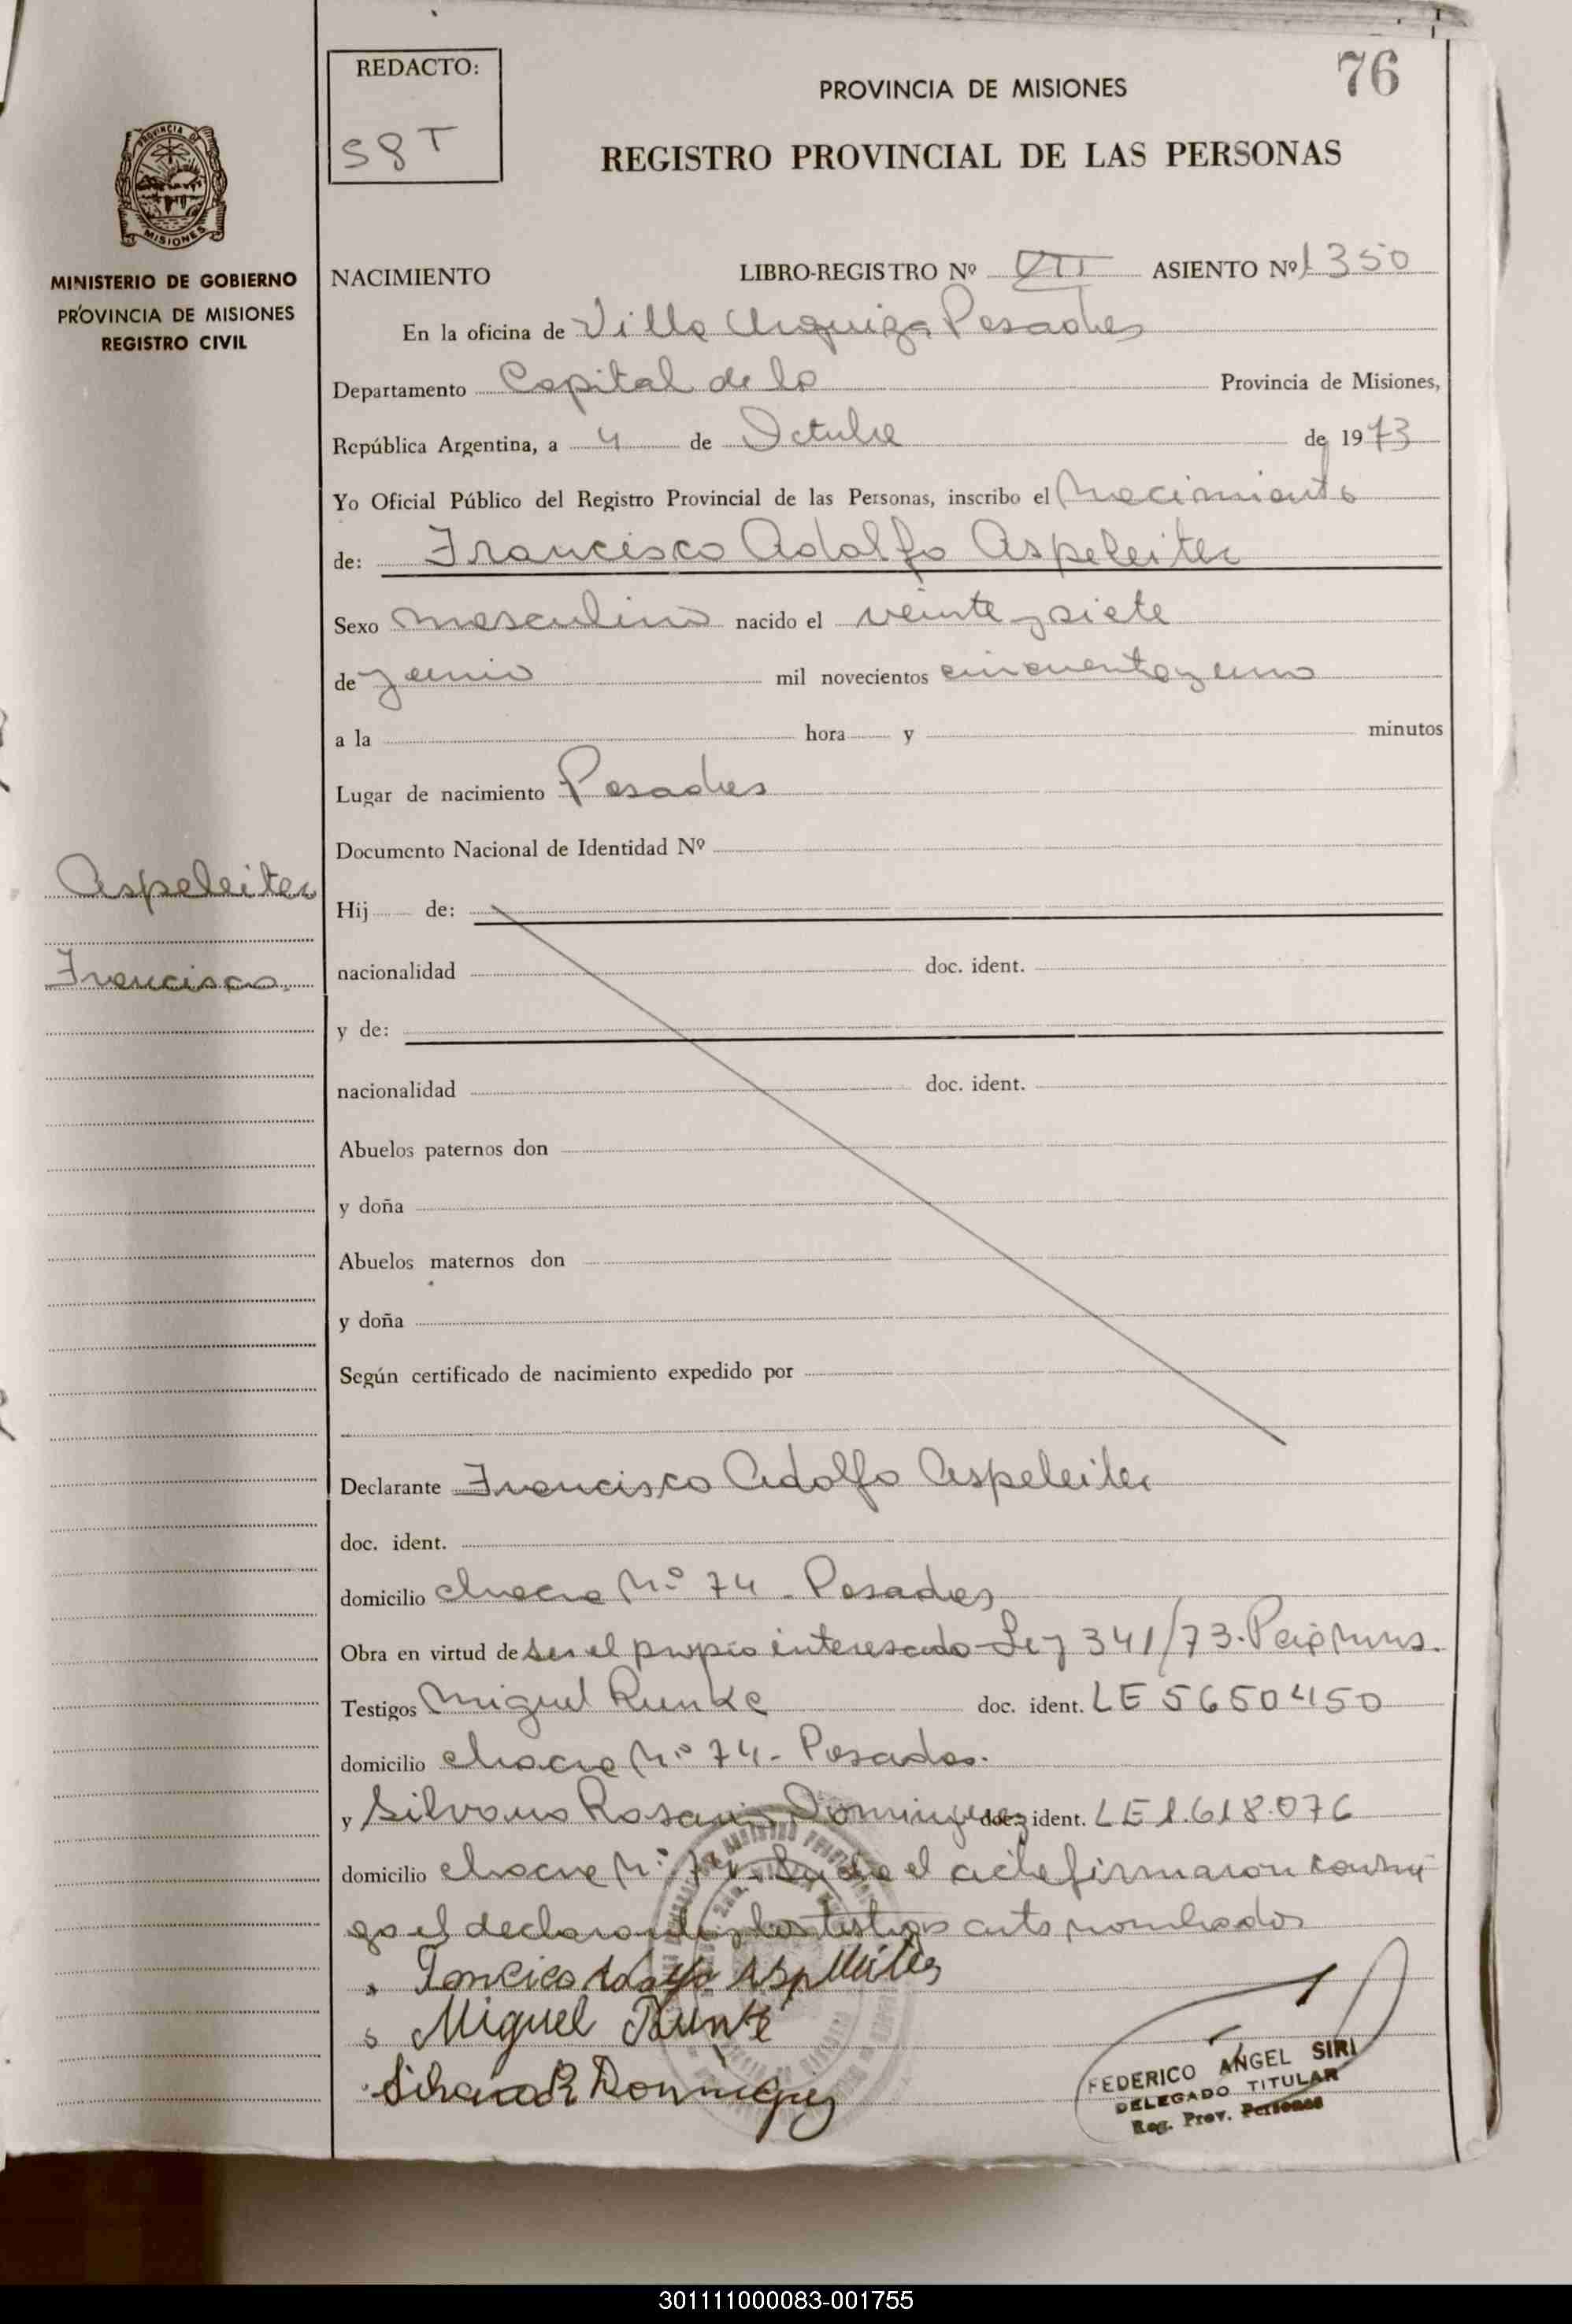 76
REDACTO:
PROVINCIA DE MISIONES
REGISTRO PROVINCIAL DE LAS PERSONAS
PROVINCIA DE
MISIONES
MINISTERIO DE GOBIERNO
PROVINCIA DE MISIONES
REGISTRO CIVIL
NACIMIENTO LIBRO-REGISTRO Nº VII ASIENTO Nº 1350
En la oficina de Villa Urquiza Posadas
Departamento Capital de la Provincia de Misiones,
República Argentina, a 4 de Octubre de 1973
Yo Oficial Público del Registro Provincial de las Personas, inscribo el Nacimiento
de: Francisco Adolfo Aspeleiter
Sexo masculino nacido el veinte y siete
de junio mil novecientos cincuenta y uno
a la hora y minutos
Lugar de nacimiento Posadas
Documento Nacional de Identidad Nº
Aspeleiter
Francisco.
Hij de:
nacionalidad doc. ident.
y de:
nacionalidad doc. ident.
Abuelos paternos don
y doña
Abuelos maternos don
y doña
Según certificado de nacimiento expedido por
Declarante Francisco Adolfo Aspeleiter
doc. ident.
domicilio chacra Nº 74 - Posadas
Obra en virtud de ser el propio interesado - Ley 341/73.
Testigos Miguel Runke doc. ident. LE 5650450
domicilio chacra Nº 74 - Posadas.
y Silvano Rosario Dominguez doc. ident. LE 1.618.076
domicilio chacra Nº 74 - el acta firmaron conmi
go el declarante y los testigos antes nombrados
Miguel Runke
Silvano R Dominguez
FEDERICO ANGEL SIRI
DELEGADO TITULAR
Reg. Prov. Personas
301111000083-001755